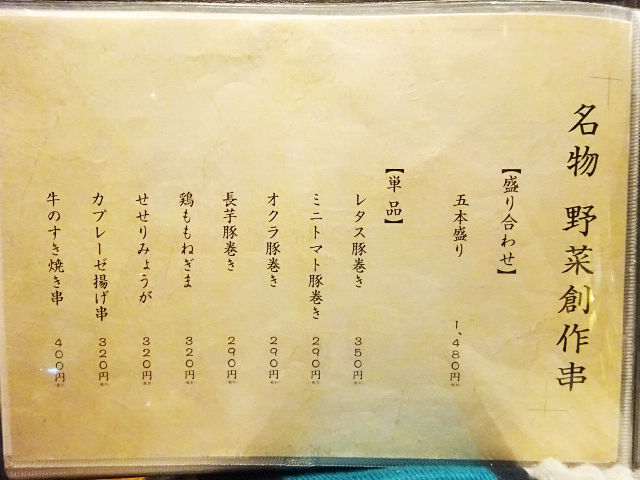 名物 野菜創作串
【盛り合わせ】
五本盛り 1,480円
【単品】
レタス豚巻き 350円
ミニトマト豚巻き 290円
オクラ豚巻き 290円
長芋豚巻き 290円
鶏ももねぎま 320円
せせりみょうが 320円
カプレーゼ揚げ串 320円
牛のすき焼き串 400円